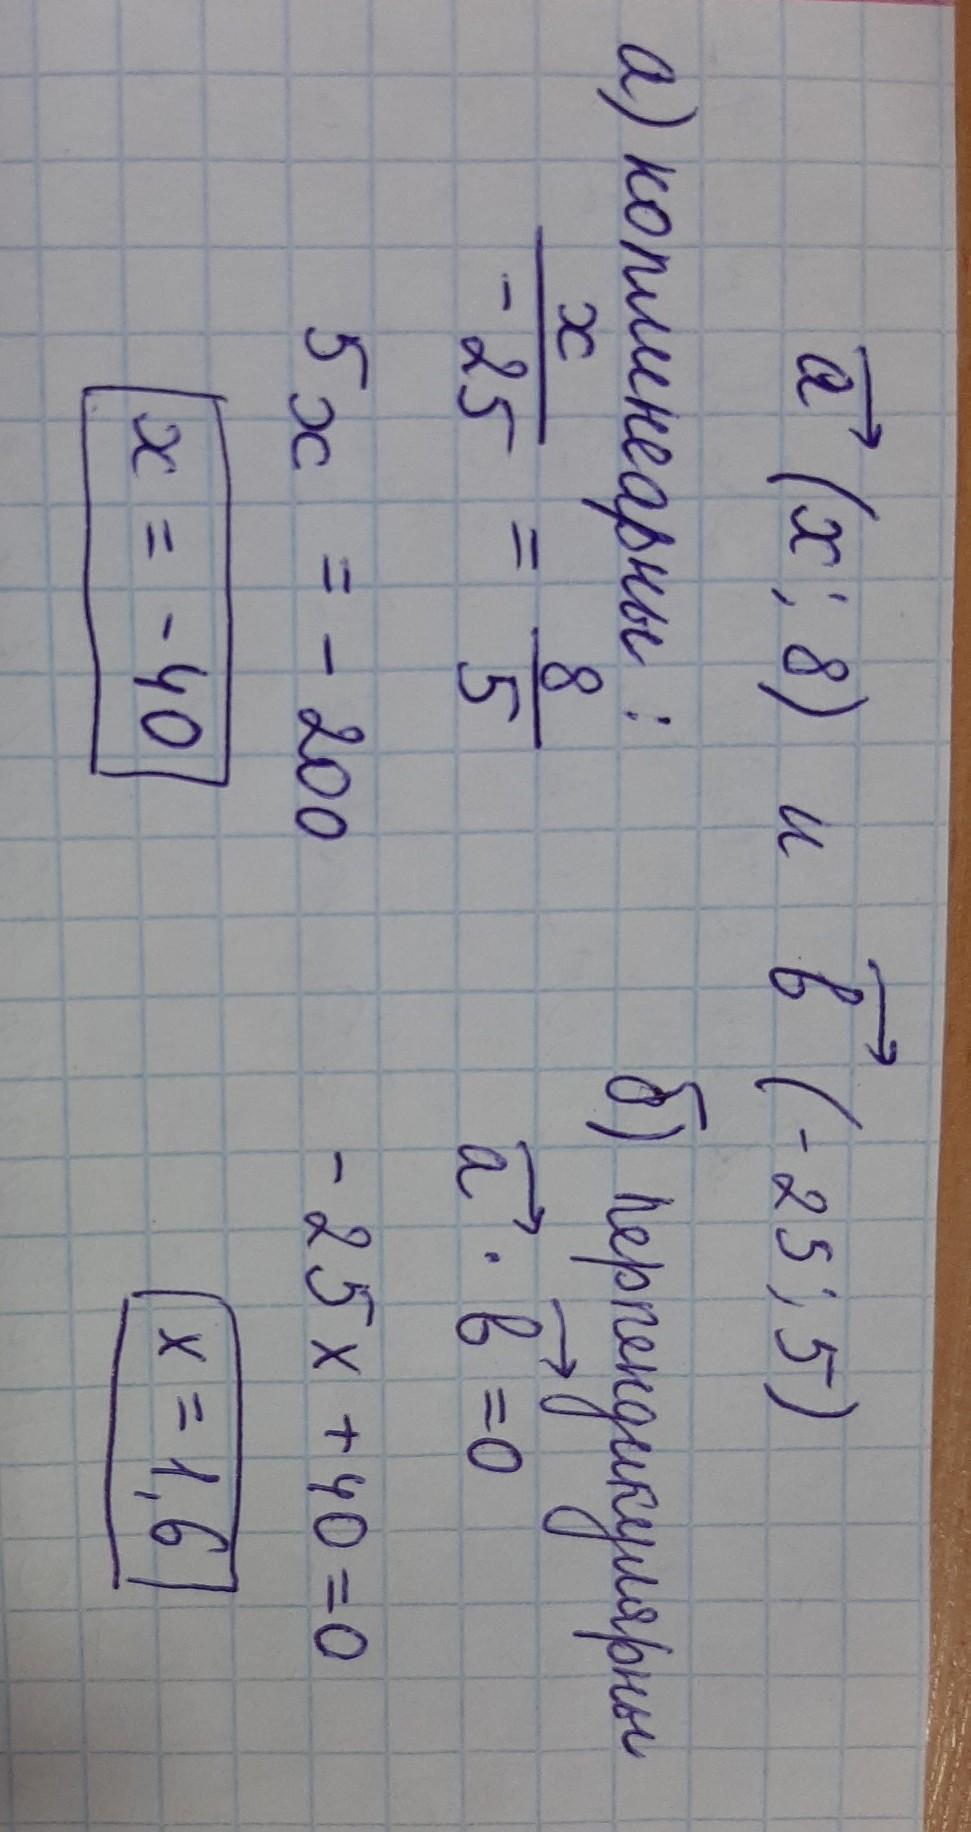 a⃗ (x; 8) и b⃗ (-25; 5)
а) коллинеарны:
x/-25 = 8/5
5x = -200
x = -40
б) перпендикулярны
a⃗ · b⃗ = 0
-25x + 40 = 0
x = 1,6